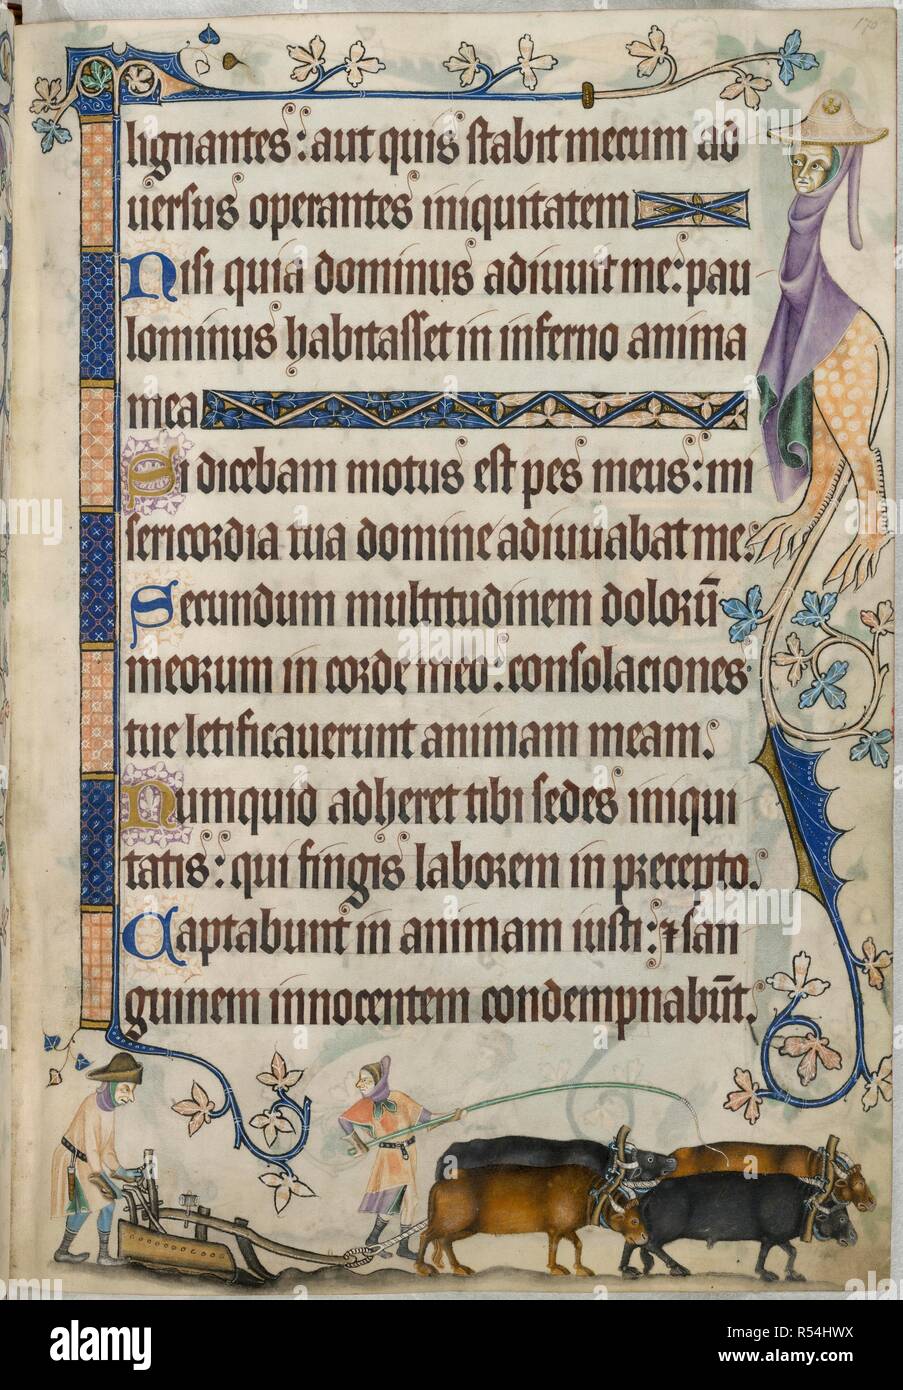 170
lignantes: aut quis stabit mecum ad
uersus operantes iniquitatem
Nisi quia dominus adiuuit me: pau
lominus habitasset in inferno anima
mea
Si dicebam motus est pes meus: mi
sericordia tua domine adiuuabat me.
Secundum multitudinem dolorū
meorum in corde meo: consolaciones
tue letificauerunt animam meam.
Numquid adheret tibi sedes iniqui
tatis: qui fingis laborem in precepto.
Captabunt in animam iusti: ⁊ san
guinem innocentem condempnabūt.
alamy
Image ID: R54HWX
www.alamy.com